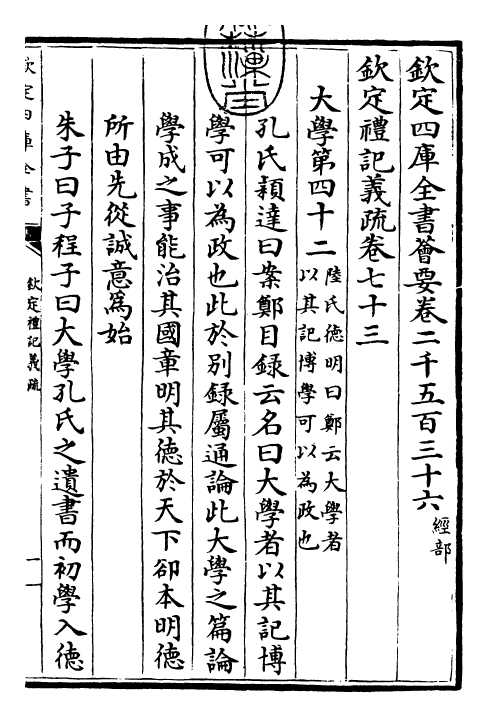 欽定四庫全書薈要卷二千五百三十六 經部
欽定禮記義疏卷七十三
大學第四十二 陸氏德明曰鄭云大學者
以其記博學可以為政也
孔氏穎達曰案鄭目録云名曰大學者以其記博
學可以為政也此於別録屬通論此大學之篇論
學成之事能治其國章明其德於天下卻本明德
所由先從誠意為始
朱子曰子程子曰大學孔氏之遺書而初學入德
欽定四庫全書
欽定禮記義疏
一